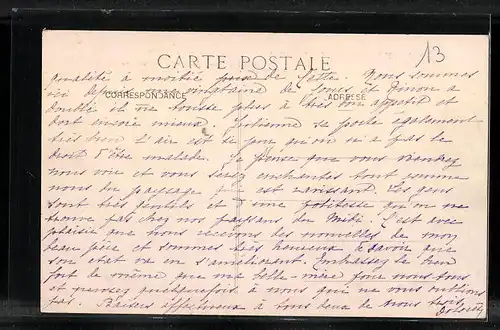 CARTE POSTALE
13
qualité à moitié prise de Cette. Nous sommes
ici depuis une vingtaine de jours et Simon a
CORRESPONDANCE
ADRESSE
doublé et ne tousse plus a très bon appetit et
dort encore mieux. Julienne se porte egalement
très bien l'air est si pur qu'on n'a pas le
droit d'être malade. Je pense que vous viendrez
nous voir et vous serez enchantés tout comme
nous du paysage qui est ravissant. Les gens
sont très gentils et d'une politesse qu'on ne
trouve pas chez nos paysans du Midi. C'est avec
plaisir que nous recevons des nouvelles de mon
beau père et sommes très heureux de savoir que
son état va en s'améliorant. Embrassez le bien
fort de même que ma belle-mère pour nous tous
et pensez quelquefois à nous qui ne vous oublions
pas. Baisers affectueux à tous deux de nous trois